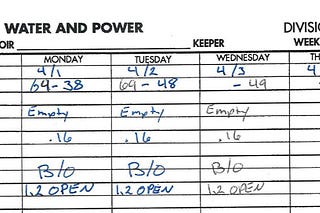 WATER AND POWER DIVISIO
OIR KEEPER WEEK
MONDAY TUESDAY WEDNESDAY TH
4/1 4/2 4/3 4
64-38 69-48 -49
Empty Empty Empty
.16 .16 .16
B/O B/O B/O
1,2 OPEN 1,2 OPEN 1,2 OPEN